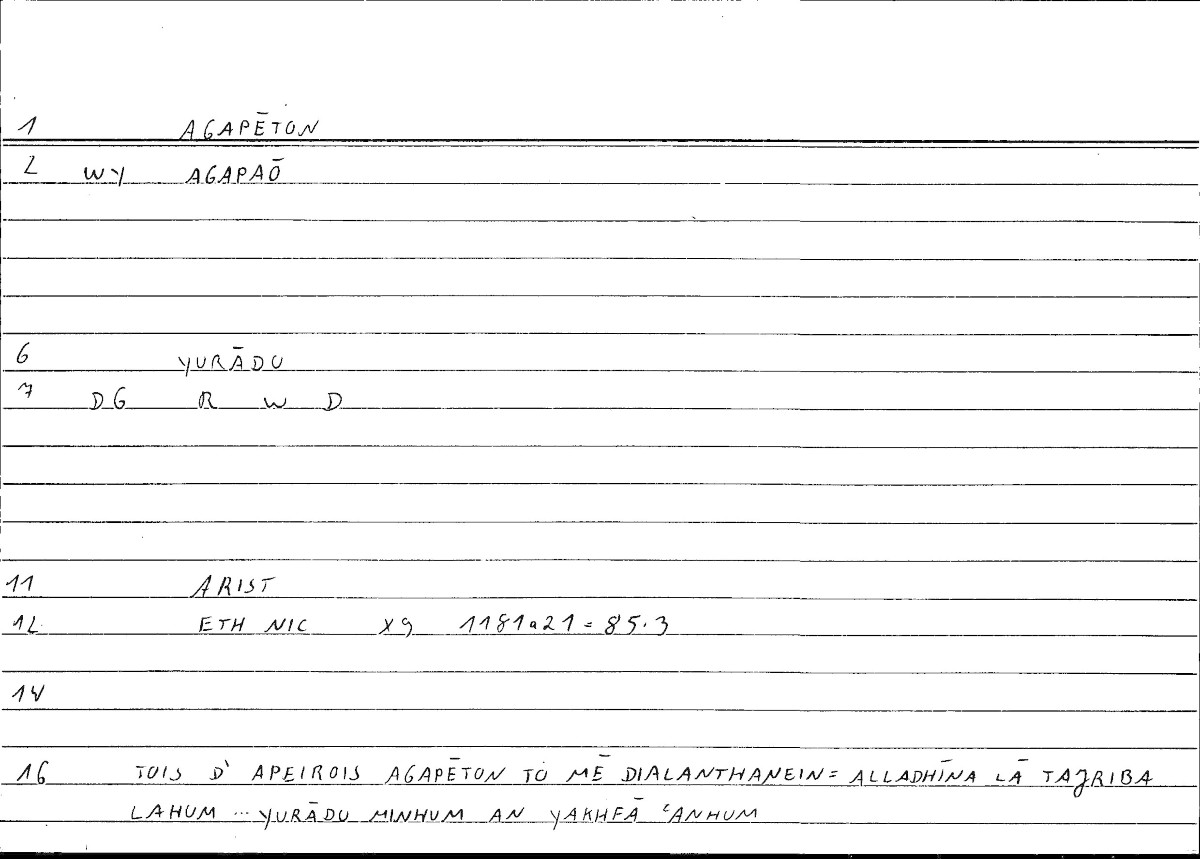 1 AGAPĒTON
2 WY AGAPAŌ
6 YURĀDU
7 DG R W D
11 ARIST
12 ETH NIC X9 1181a21 = 85.3
14
16 TOIS D' APEIROIS AGAPĒTON TO MĒ DIALANTHANEIN = ALLADHĪNA LĀ TAJRIBA
LAHUM ... YURĀDU MINHUM AN YAKHFĀ ʿANHUM